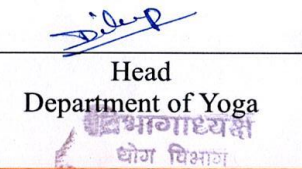 Dileep
Head
Department of Yoga
विभागाध्यक्ष
योग विभाग